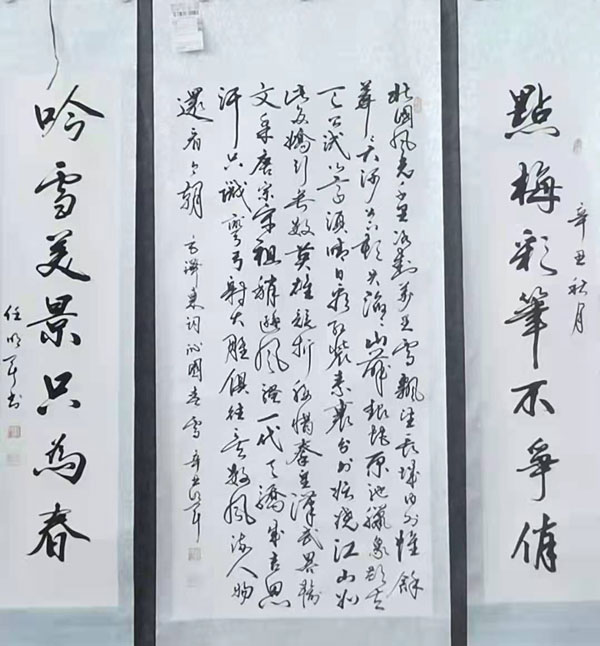 點梅彩筆不爭俏
辛丑秋月
北國风光千里冰封萬里雪飄望長城内外惟餘
莽々大河上下頓失滔々山舞银蛇原驰蠟象欲与
天公试比高須晴日看红装素裹分外妖娆江山如
此多嬌引无数英雄競折腰惜秦皇漢武畧輸
文采唐宗宋祖稍遜風騷一代天驕成吉思
汗只識彎弓射大雕俱往矣数風流人物
還看今朝 毛澤東词沁園春雪 辛丑
吟雪美景只為春
任明军书